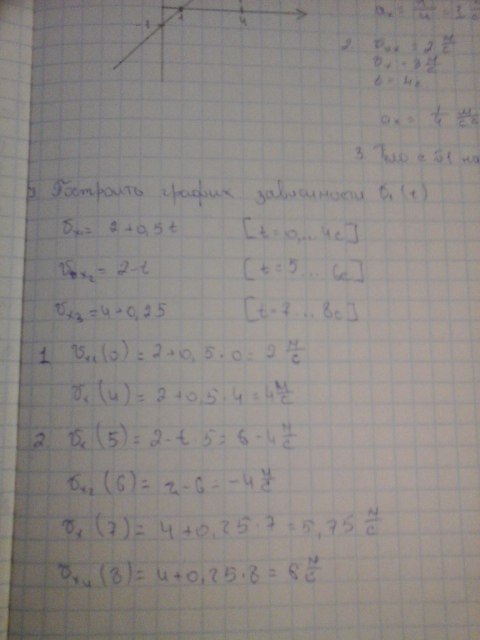 -1 1 4
2 υ₀ₓ = 2 м/с
υₓ = 3 м/с
t = 4с
aₓ = 1/4 м/с
3 Тело с
Построить график зависимости υₓ(t)
υₓ = 2+0,5t [t=0,...4с]
υₓ₂ = 2-t [t=5...6с]
υₓ₃ = 4+0,25 [t=7...8с]
1 υₓ₁(0) = 2+0,5·0 = 2 м/с
υₓ(4) = 2+0,5·4 = 4 м/с
2 υₓ(5) = 2-t 5 = 6 - 4 м/с
υₓ₂(6) = 2-6 = -4 м/с
υₓ(7) = 4+0,25·7 = 5,75 м/с
υₓ₄(8) = 4+0,25·8 = 6 м/с